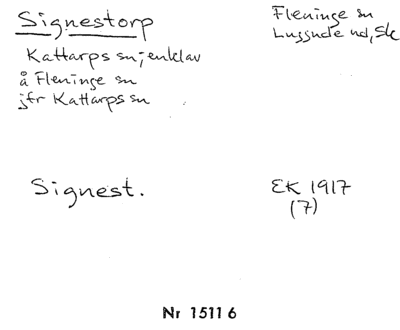 Signestorp
Fleninge sn
Luggude hd, Sk
Kattarps sn; enklav
å Fleninge sn
jfr Kattarps sn
Signest.
EK 1917
(7)
Nr 15116